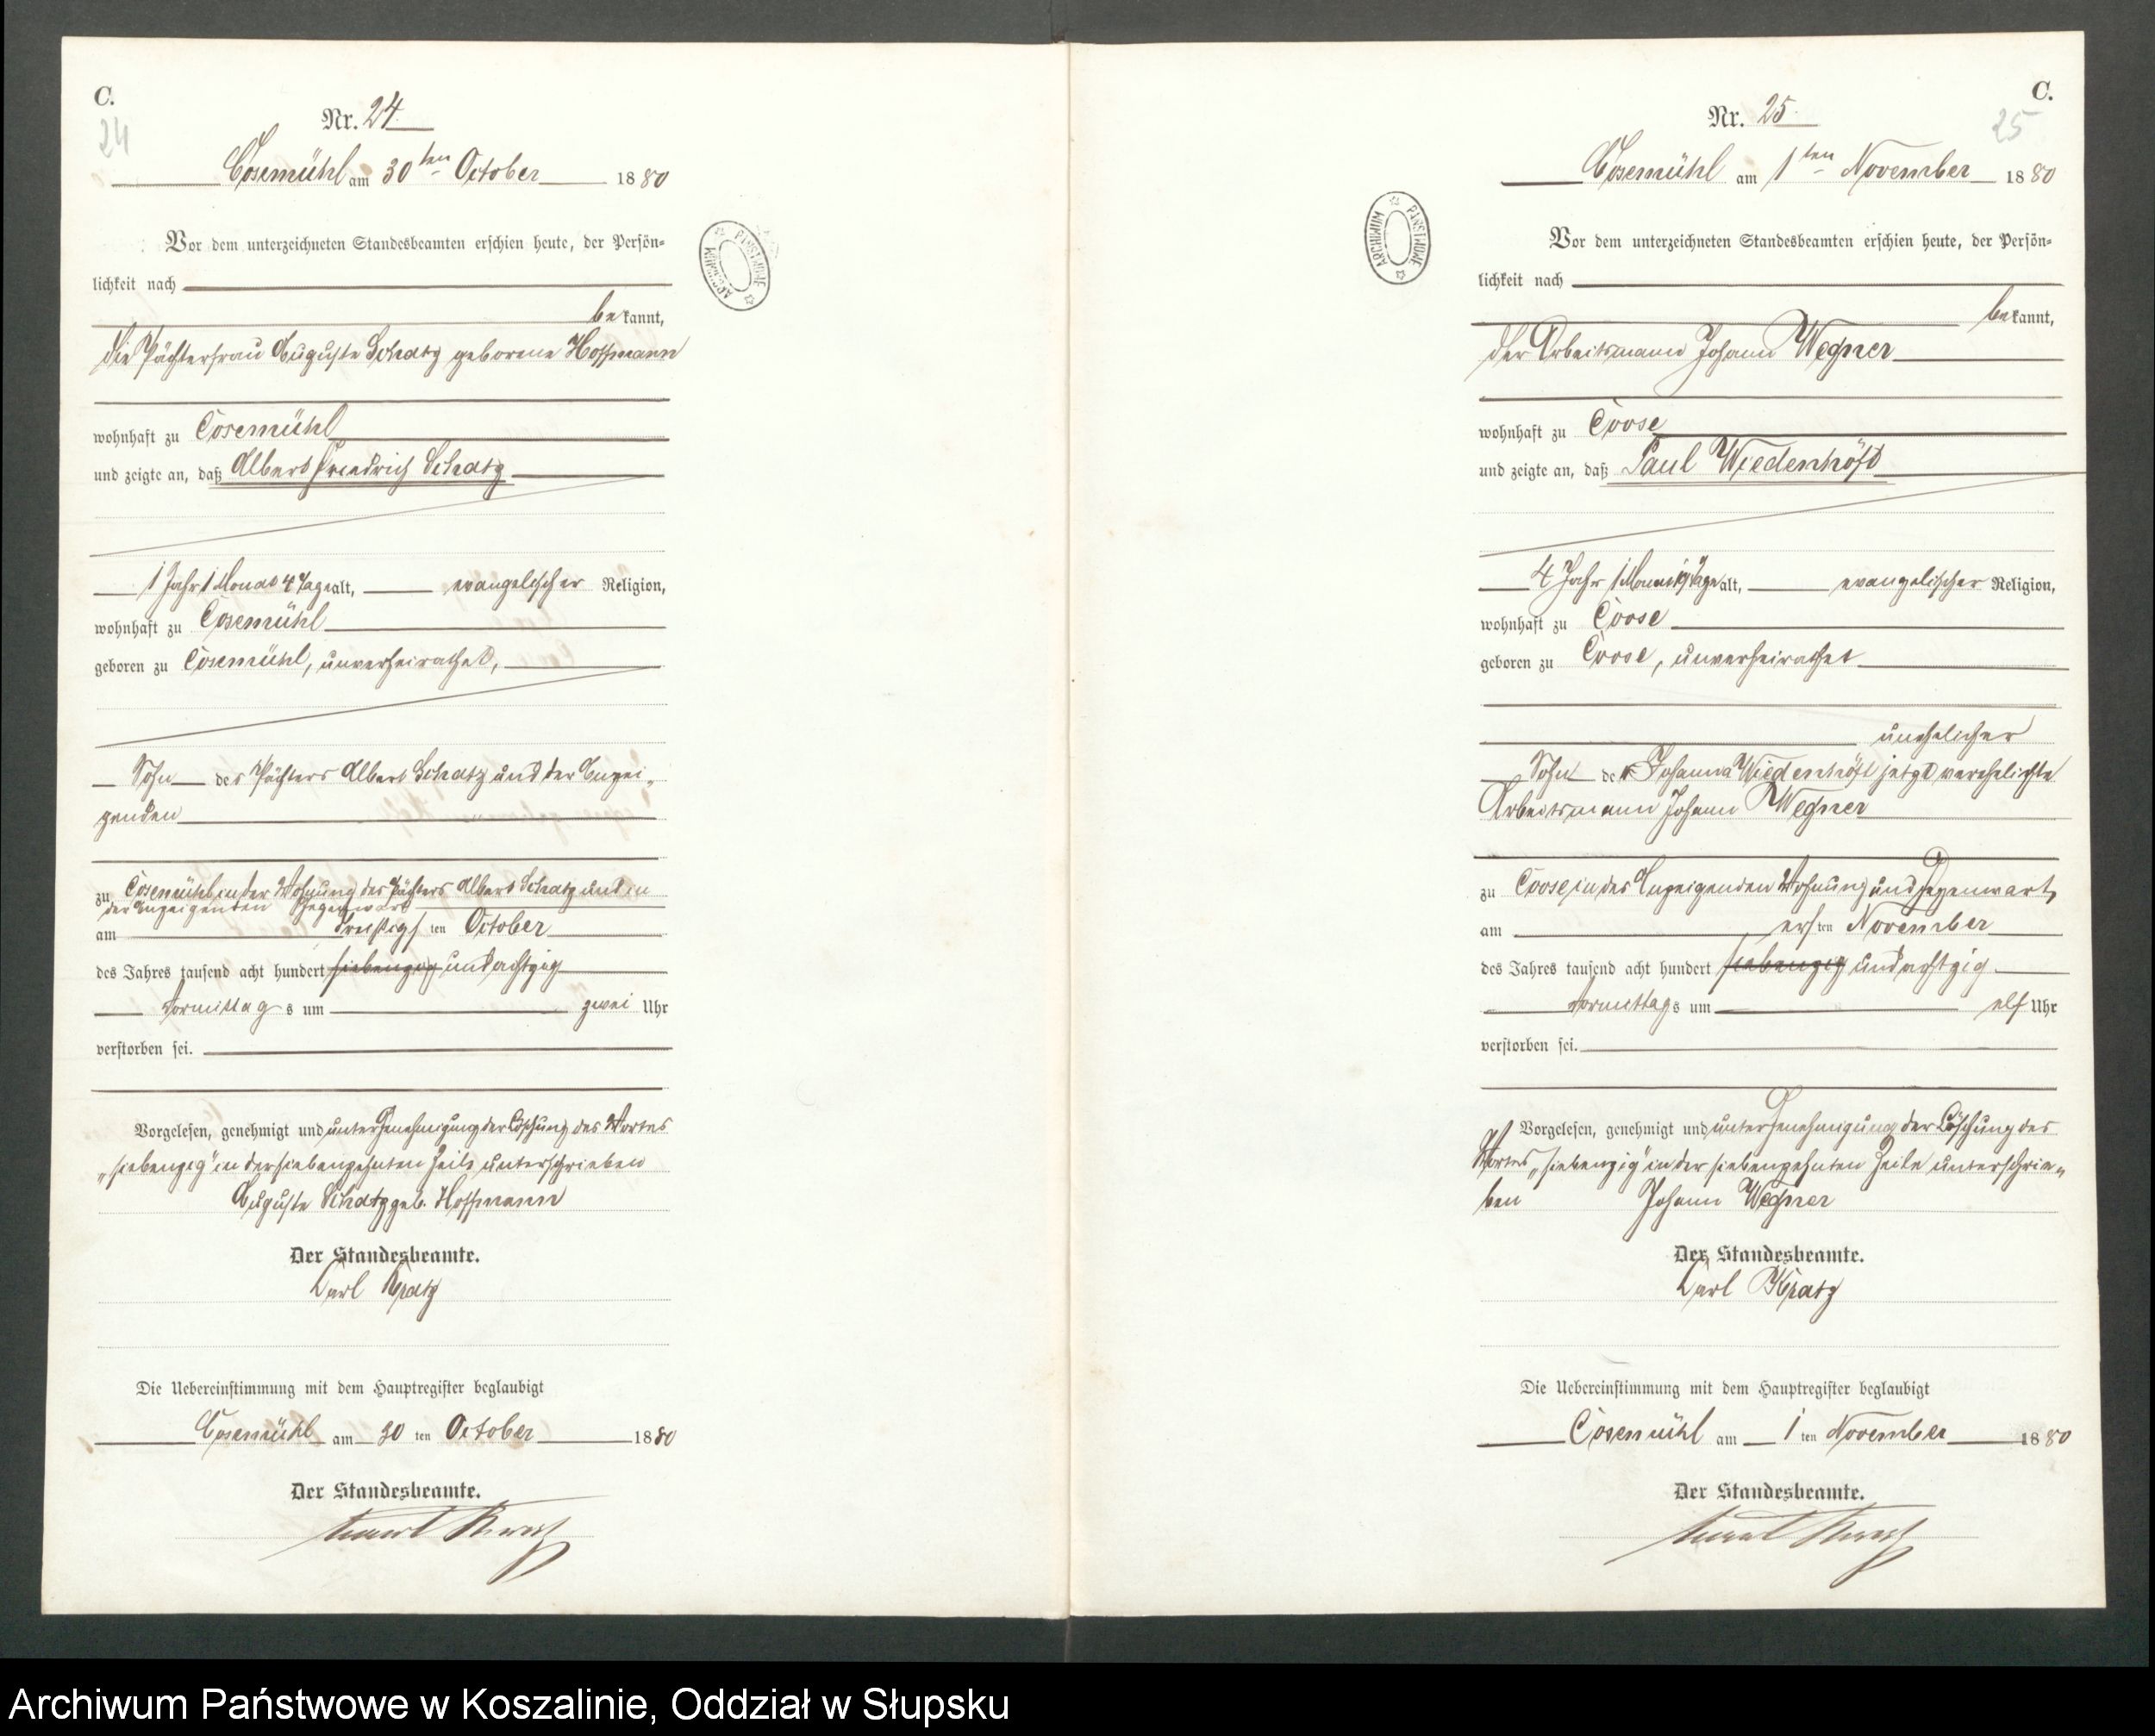 C.
24
Nr. 24
Cosemühl am 30ten October 1880
ARCHIWUM PAŃSTWOWE
Vor dem unterzeichneten Standesbeamten erschien heute, der Persön-
lichkeit nach
bekannt,
die Pächterfrau Auguste Schatz geborene Hoffmann
wohnhaft zu Cosemühl
und zeigte an, daß Albert Friedrich Schatz
1 Jahr 1 Monat 4 Tage alt, evangelischer Religion,
wohnhaft zu Cosemühl
geboren zu Cosemühl, unverheirathet,
Sohn des Pächters Albert Schatz und der Anzei-
genden
zu Cosemühl in der Wohnung des Pächters Albert Schatz und in
der Anzeigenden Gegenwart
am dreißigsten October
des Jahres tausend acht hundert siebenzig und achtzig
Vormittags um zwei Uhr
verstorben sei.
Vorgelesen, genehmigt und unter Genehmigung der Löschung des Wortes
„siebenzig" in der siebenzehnten Zeile unterschrieben
Auguste Schatz geb. Hoffmann
Der Standesbeamte.
Carl
Die Uebereinstimmung mit dem Hauptregister beglaubigt
Cosemühl am 30ten October 1880
Der Standesbeamte.
C.
25
Nr. 25.
Cosemühl am 1ten November 1880
ARCHIWUM PAŃSTWOWE
Vor dem unterzeichneten Standesbeamten erschien heute, der Persön-
lichkeit nach
bekannt,
der Arbeitsmann Johann Wegner
wohnhaft zu Coose
und zeigte an, daß Paul Wiedenhöft
4 Jahr 1 Monat Tage alt, evangelischer Religion,
wohnhaft zu Coose
geboren zu Coose, unverheirathet
unehelicher
Sohn der Johanna Wiedenhöft jetzt verehelichte
Arbeitsmann Johann Wegner
zu Coose in des Anzeigenden Wohnung und Gegenwart,
am ersten November
des Jahres tausend acht hundert siebenzig und achtzig
Vormittags um elf Uhr
verstorben sei.
Vorgelesen, genehmigt und unter Genehmigung der Löschung des
Wortes „siebenzig" in der siebenzehnten Zeile unterschrie-
ben Johann Wegner
Der Standesbeamte.
Carl
Die Uebereinstimmung mit dem Hauptregister beglaubigt
Cosemühl am 1ten November 1880
Der Standesbeamte.
Archiwum Państwowe w Koszalinie, Oddział w Słupsku